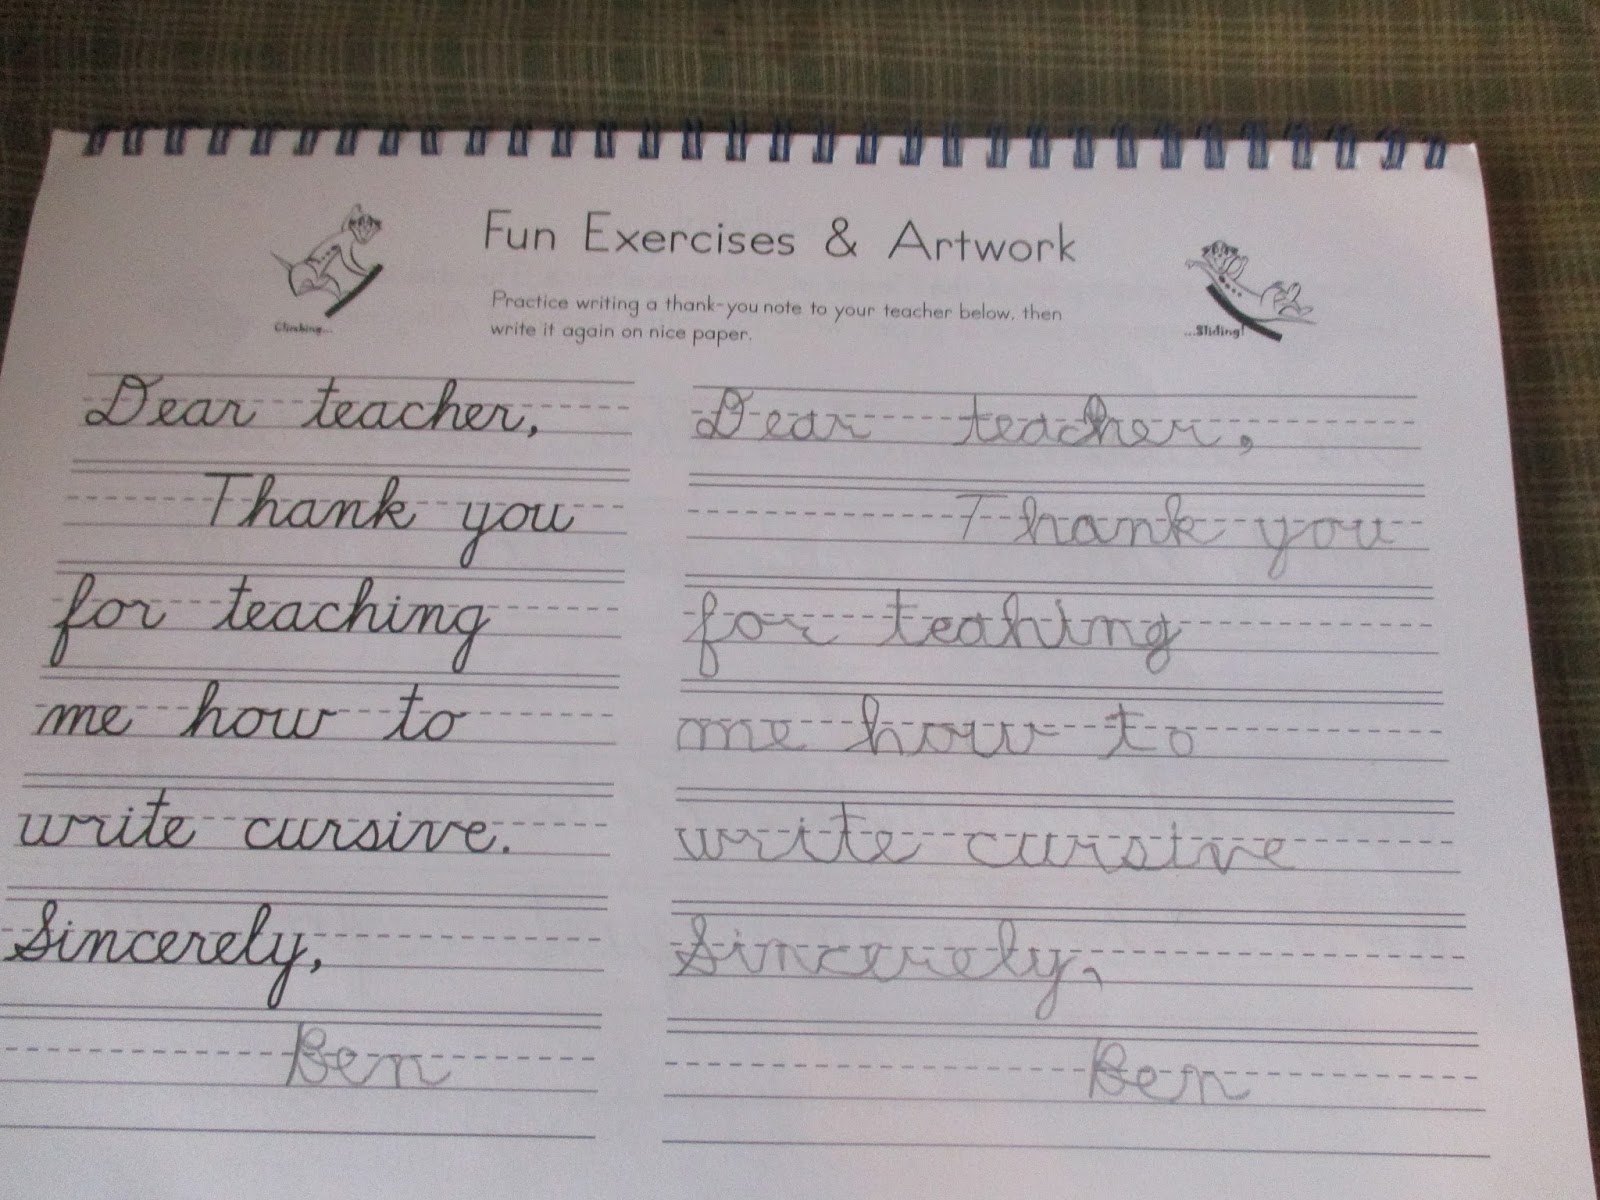 Fun Exercises & Artwork
Climbing...
Practice writing a thank-you note to your teacher below, then
write it again on nice paper.
...Sliding!
Dear teacher,
Thank you
for teaching
me how to
write cursive.
Sincerely,
Ben
Dear teacher,
Thank you
for teahing
me how to
write cursive
Sincerely,
Ben